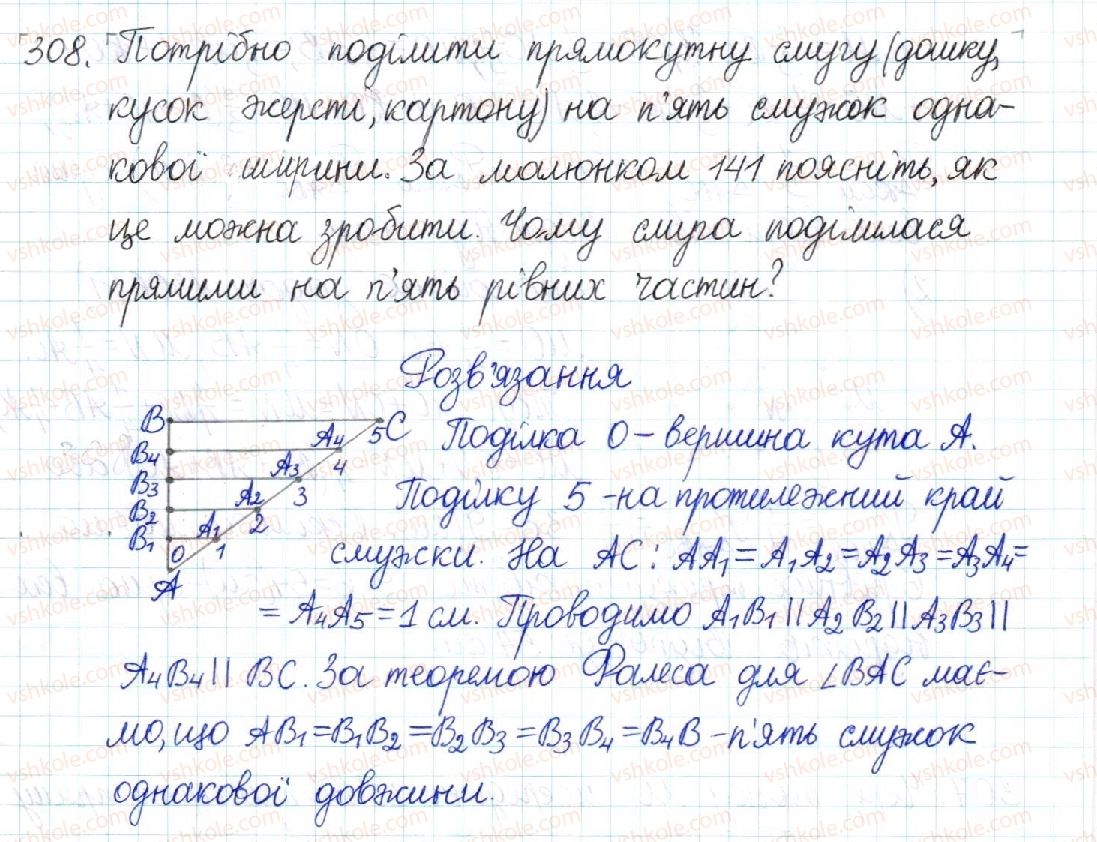 308. Потрібно поділити прямокутну смугу (дошку,
кусок жерсті, картону) на п'ять смужок одна-
кової ширини. За малюнком 141 поясніть, як
це можна зробити. Чому смуга поділилася
прямими на п'ять рівних частин?
Розв'язання
B 5 C
B4 A4 4
B3 A3 3
B2 A2 2
B1 A1 1
0
A
Поділка 0 – вершина кута A.
Поділку 5 - на протилежний край
смужки. На AC: AA1 = A1A2 = A2A3 = A3A4 =
= A4A5 = 1 см. Проводимо A1B1 || A2B2 || A3B3 ||
A4B4 || BC. За теоремою Фалеса для ∠BAC має-
мо, що AB1 = B1B2 = B2B3 = B3B4 = B4B – п'ять смужок
однакової довжини.